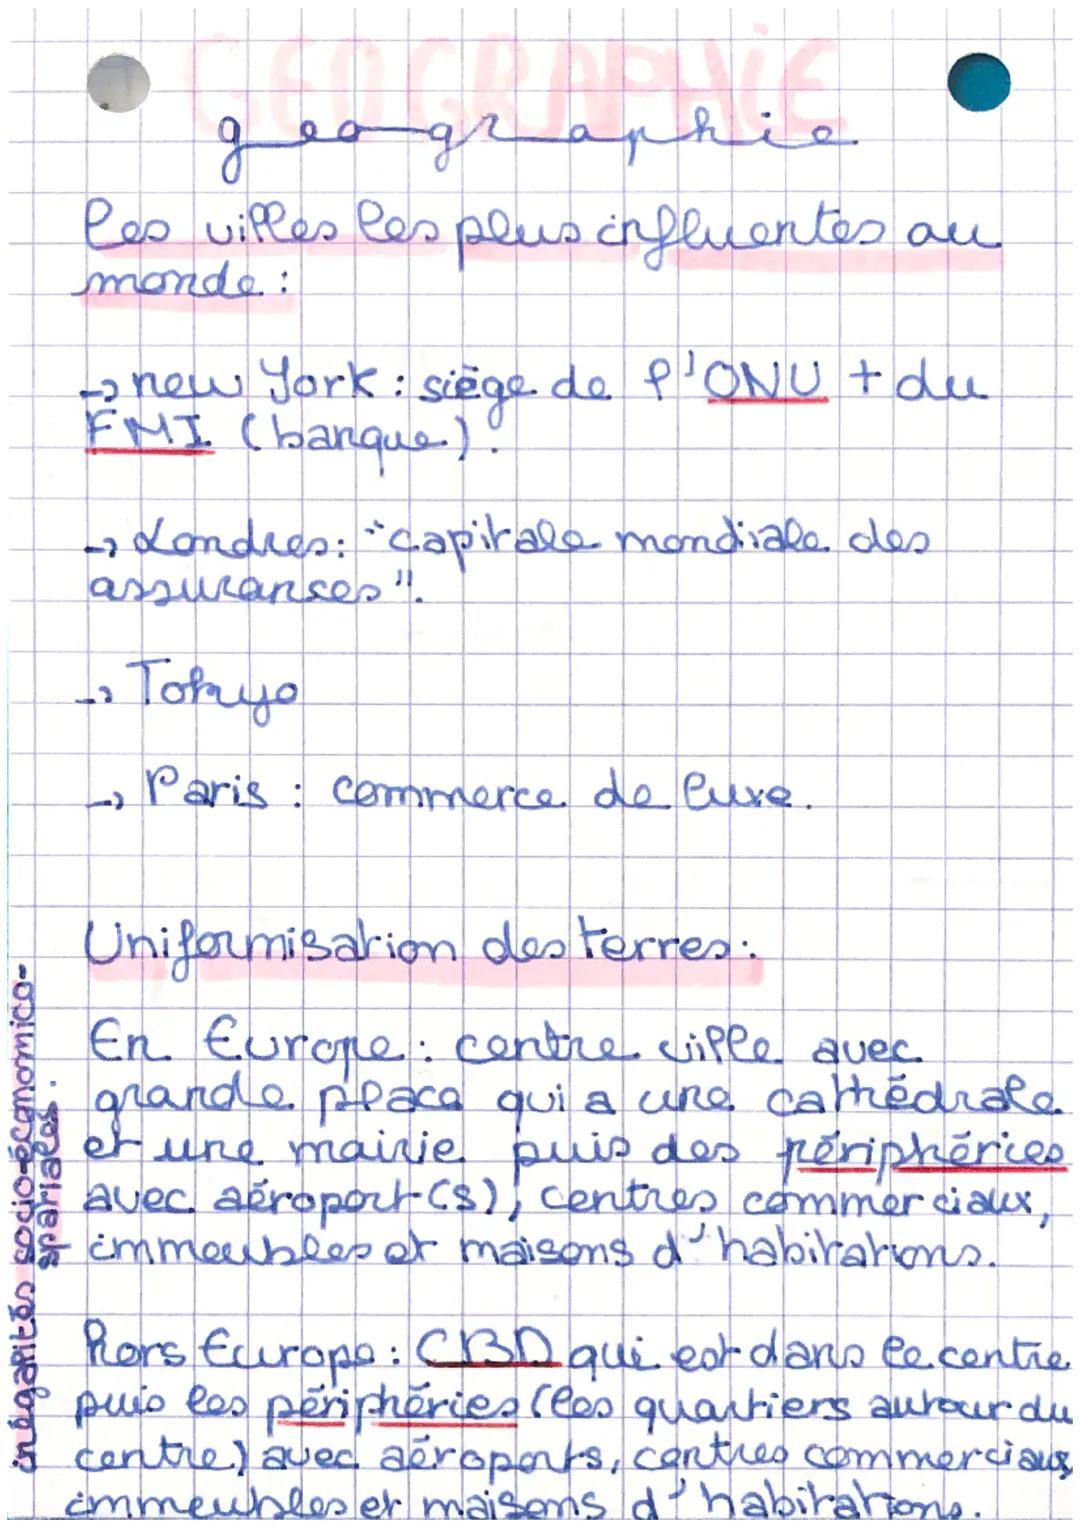 GEOGRAPHIE
geographie
les villes les plus influentes au
monde :
→ new York : siège de l'ONU + du
FMI (banque).
→ Londres : "capitale mondiale des
assurances".
→ Tokyo
→ Paris : commerce de luxe.
Uniformisation des terres :
En Europe : centre ville avec
grande place qui a une cathédrale
et une mairie puis des périphérices
avec aéroport(s), centres commerciaux,
immeubles et maisons d'habitations.
hors Europe : CBD qui est dans le centre
puis les périphéries (les quartiers autour du
centre) avec aéroports, centres commerciaux,
immeubles et maisons d'habitations.
inégalités socio-économico-
spatiales.